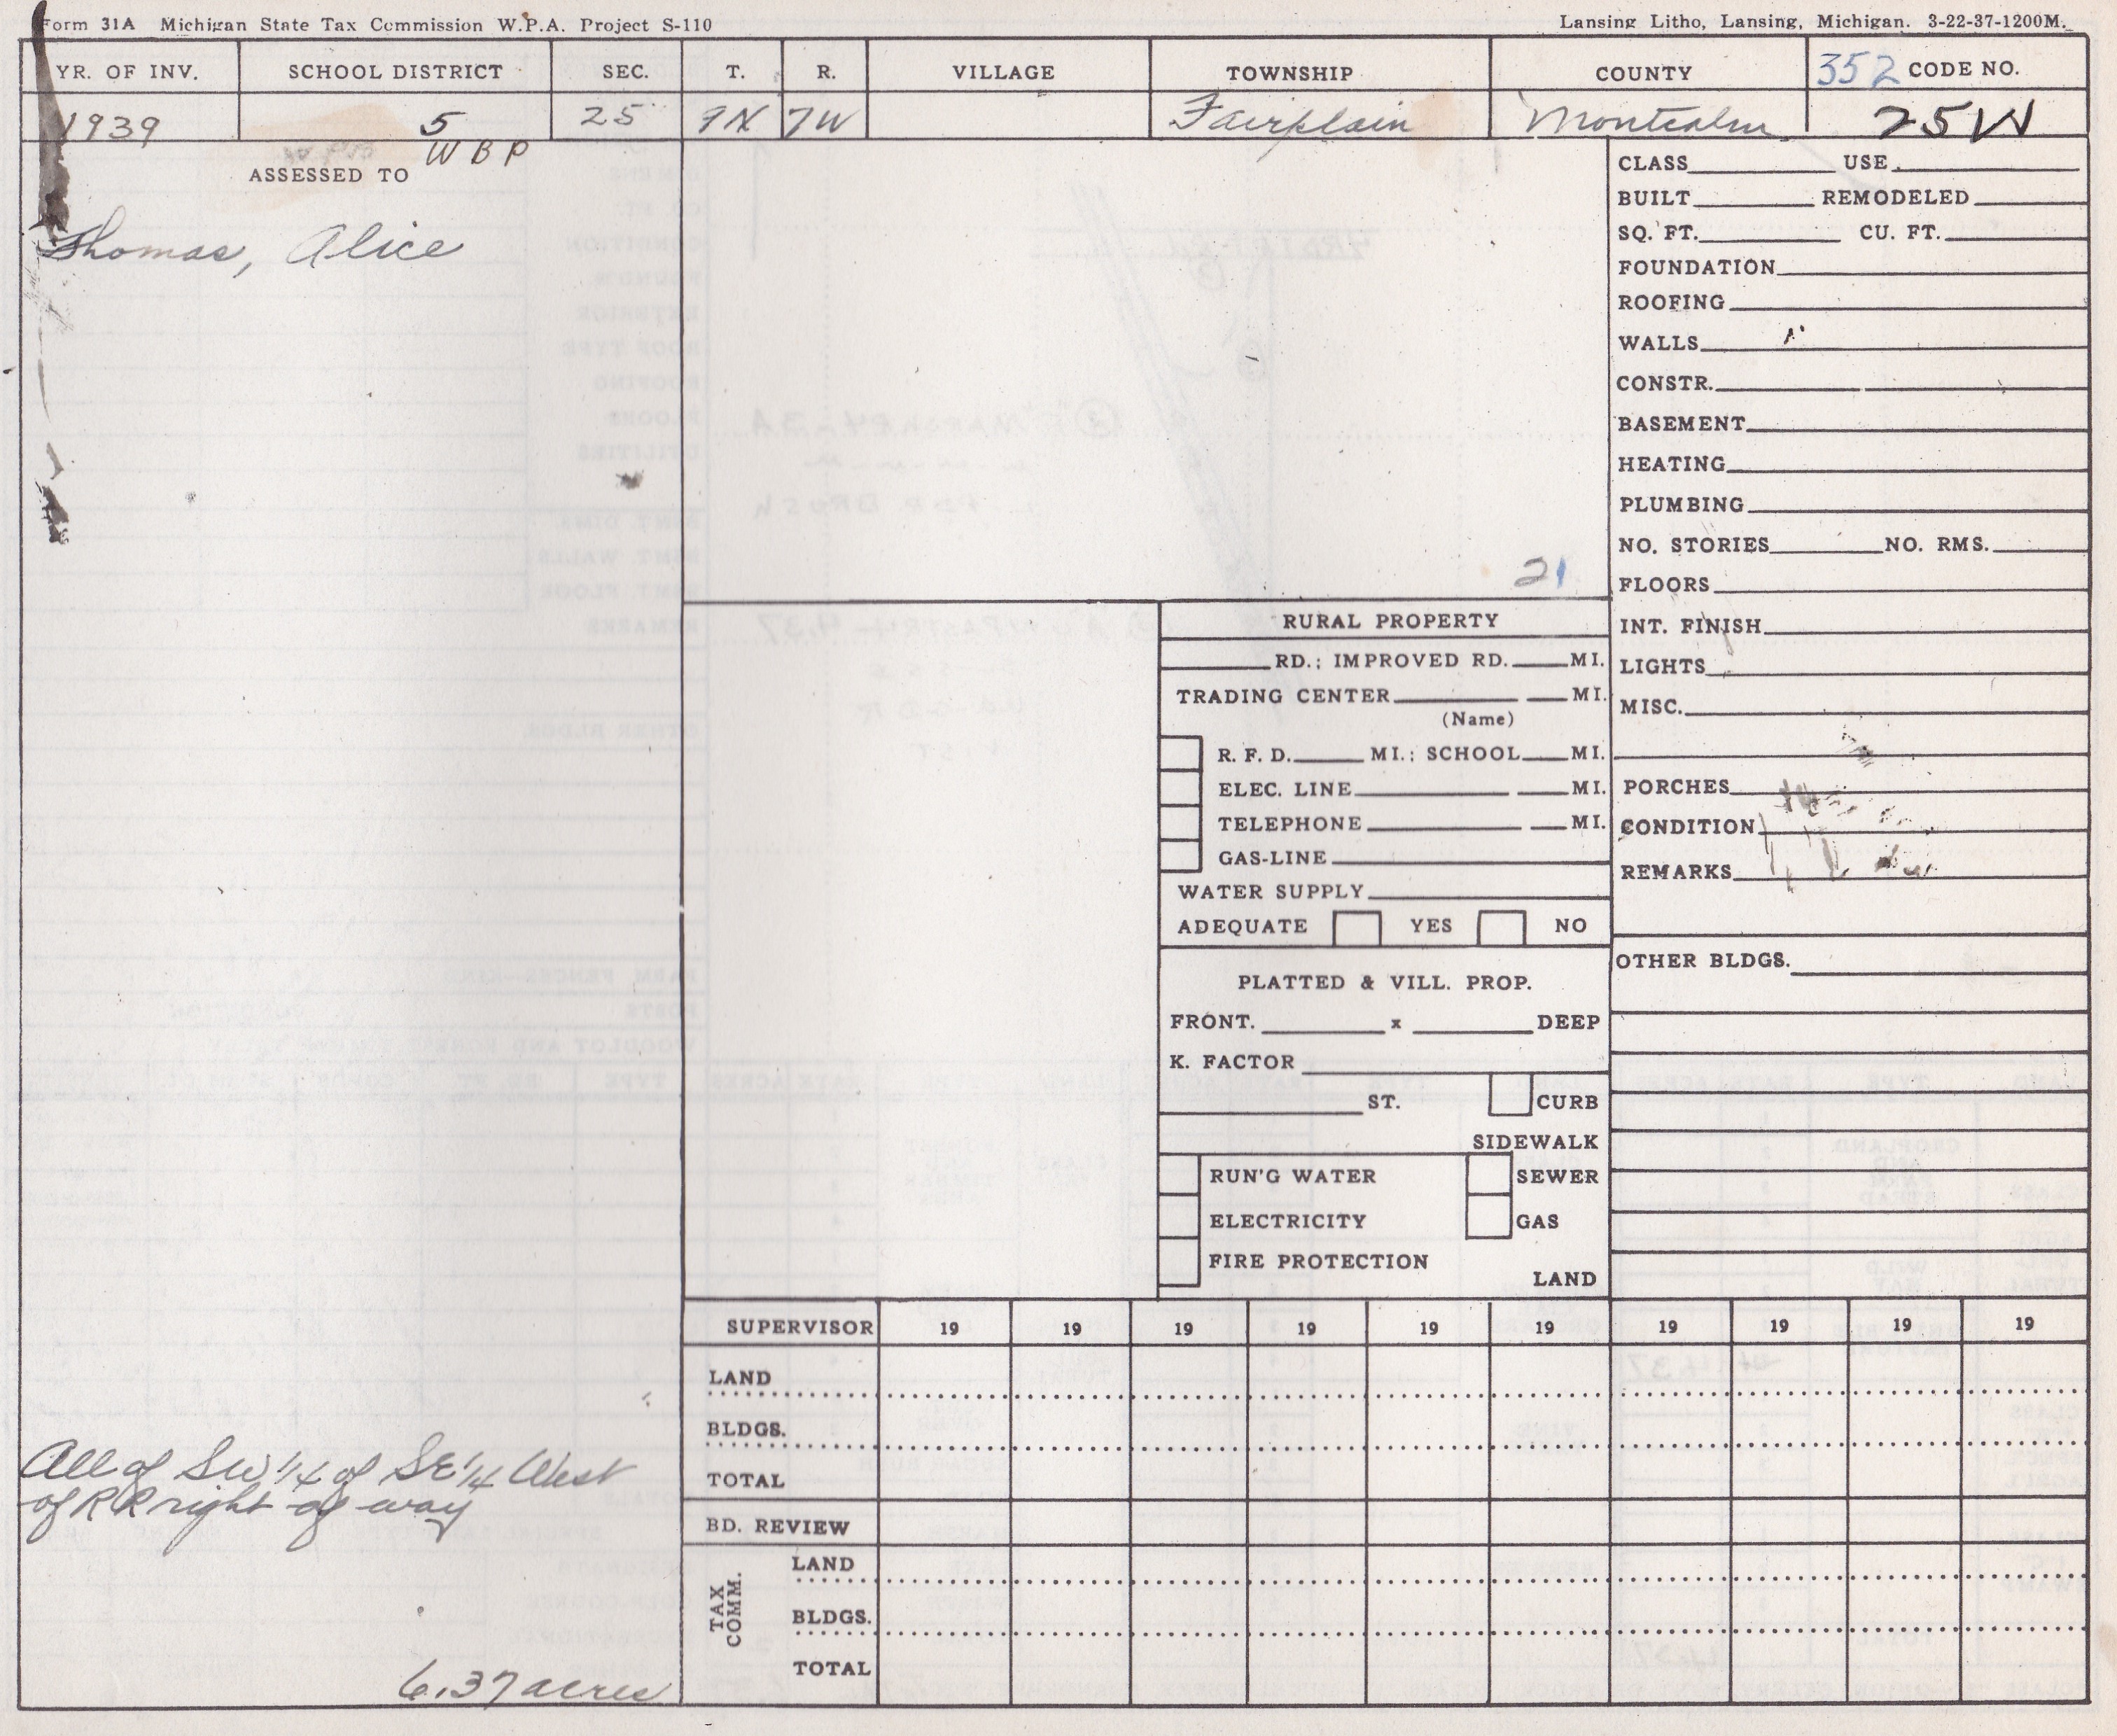 Form 31A Michigan State Tax Commission W.P.A. Project S-110
Lansing Litho, Lansing, Michigan. 3-22-37-1200M.
YR. OF INV. SCHOOL DISTRICT SEC. T. R. VILLAGE TOWNSHIP COUNTY 352 CODE NO.
1939 5 25 9N 7W Fairplain Montcalm 25W
WBP
ASSESSED TO
Thomas, Alice
21
CLASS USE
BUILT REMODELED
SQ. FT. CU. FT.
FOUNDATION
ROOFING
WALLS
CONSTR.
BASEMENT
HEATING
PLUMBING
NO. STORIES NO. RMS.
FLOORS
INT. FINISH
LIGHTS
MISC.
PORCHES
CONDITION
REMARKS
OTHER BLDGS.
RURAL PROPERTY
RD.; IMPROVED RD. MI.
TRADING CENTER MI.
(Name)
R. F. D. MI.; SCHOOL MI.
ELEC. LINE MI.
TELEPHONE MI.
GAS-LINE
WATER SUPPLY
ADEQUATE YES NO
PLATTED & VILL. PROP.
FRONT. x DEEP
K. FACTOR
ST. CURB
SIDEWALK
RUN'G WATER SEWER
ELECTRICITY GAS
FIRE PROTECTION
LAND
SUPERVISOR 19 19 19 19 19 19 19 19 19 19
LAND
BLDGS.
TOTAL
BD. REVIEW
TAX COMM.
LAND
BLDGS.
TOTAL
All of SW 1/4 of SE 1/4 West
of RR right of way
6.37 acres